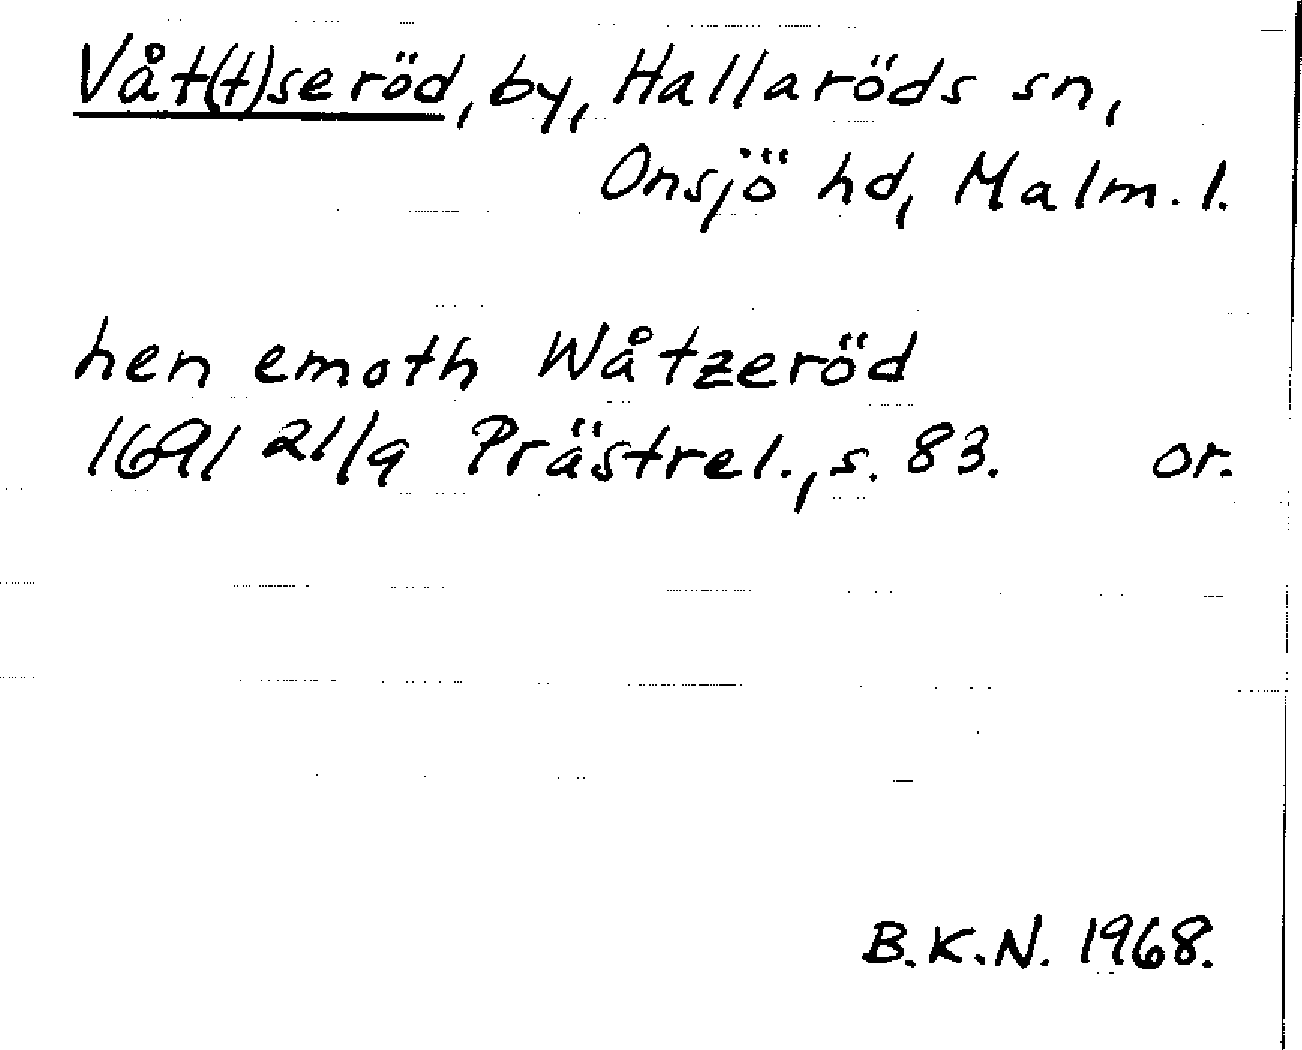 Våt(t)seröd, by, Hallaröds sn,
Onsjö hd, Malm. l.
hen emoth Wåtzeröd
1691 21/9 Prästrel., s. 83. or.
B.K.N. 1968.